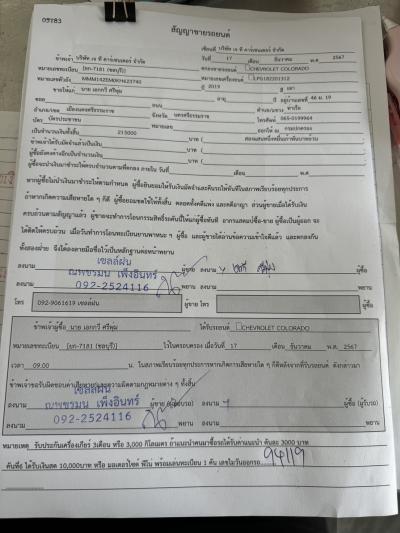 05183
สัญญาขายรถยนต์
เขียนที่ บริษัท เจ ที คาร์เซนเตอร์ จำกัด
ข้าพเจ้า บริษัท เจ ที คาร์เซนเตอร์ จำกัด วันที่ 17 เดือน ธันวาคม พ.ศ. 2567
หมายเลขทะเบียน (ยก-7181 (ชลบุรี) ตกลงขายรถยนต์ CHEVROLET COLORADO
หมายเลขตัวถัง MMM142EM0KH623740 หมายเลขเครื่องยนต์ LPG182301312
ขายให้แก่ นาย เอกวรี ศรีพุ่ม ปี 2019 สี เทา
ซอย ถนน อายุ ปี อยู่บ้านเลขที่ 46 ม.19
อำเภอ/เขต เมืองนครศรีธรรมราช จังหวัด นครศรีธรรมราช ตำบล/แขวง ท่าเรือ
บัตร บัตรประชาชน หมายเลข โทรศัพท์ 065-0199964
เป็นจำนวนเงินทั้งสิ้น 215000 บาท ( ออกให้ ณ กรมปกครอง
ข้าพเจ้าได้รับมัดจำแล้วเป็นเงิน บาท ( สองแสนหนึ่งหมื่นห้าพันบาทถ้วน
ผู้ซื้อยังคงค้างอีกเป็นจำนวนเงิน บาท (
ผู้ซื้อจะนำเงินมาชำระให้ครบจำนวนตามที่ตกลง ภายใน วันที่ เดือน พ.ศ.
หากผู้ซื้อไม่นำเงินมาชำระให้ตามกำหนด ผู้ซื้อยินยอมให้ริบเงินมัดจำและคืนรถให้ทันทีในสภาพเรียบร้อยทุกประการ
ถ้าหากเกิดความเสียหายใด ๆ ก็ดี ผู้ซื้อยอมชดใช้ให้ทั้งสิ้น ตลอดทั้งคดีแพ่ง และคดีอาญา ส่วนผู้ขายเมื่อได้รับเงิน
ทั้งสองฝ่าย จึงได้ลงลายมือชื่อไว้เป็นหลักฐานต่อหน้าพยาน
เซลล์ฝน
ลงนาม ณพชรมน เพ็งอินทร์ ผู้ขาย ลงนาม ผู้ซื้อ
ลงนาม 092-2524116 พยาน ลงนาม พยาน
โทร 092-9061619 เซลล์ฝน ผู้ขาย โทร ผู้ซื้อ
ข้าพเจ้าผู้ซื้อ นาย เอกวรี ศรีพุ่ม ได้รับรถยนต์ CHEVROLET COLORADO
หมายเลขทะเบียน (ยก-7181 (ชลบุรี) ไว้ในครอบครอง เมื่อวันที่ 17 เดือน ธันวาคม พ.ศ. 2567
เวลา 09.00 น. ในสภาพเรียบร้อยทุกประการหากเกิดการเสียหายใด ๆ ก็ดีหลังจากที่รับรถยนต์ ดังกล่าวมา
ข้าพเจ้าขอรับผิดชอบค่าเสียหายและความผิดตามกฎหมายต่าง ๆ ทั้งสิ้น
เซลล์ฝน
ลงนาม ณพชรมน เพ็งอินทร์ ผู้ขาย ลงนาม ผู้ซื้อ (ผู้รับรถ)
ลงนาม 092-2524116 พยาน ลงนาม พยาน
หมายเหตุ รับประกันเครื่องเกียร์ 3เดือน หรือ 3,000 กิโลเมตร ถ้าแนะนำคนมาซื้อรถได้รับค่าแนะนำ คันละ 3000 บาท
คันที่6 ได้รับเงินสด 10,000บาท หรือ มอเตอร์ไซค์ ฟีโน่ พร้อมเล่มทะเบียน 1 คัน เลขไมวันออกรถ 94119